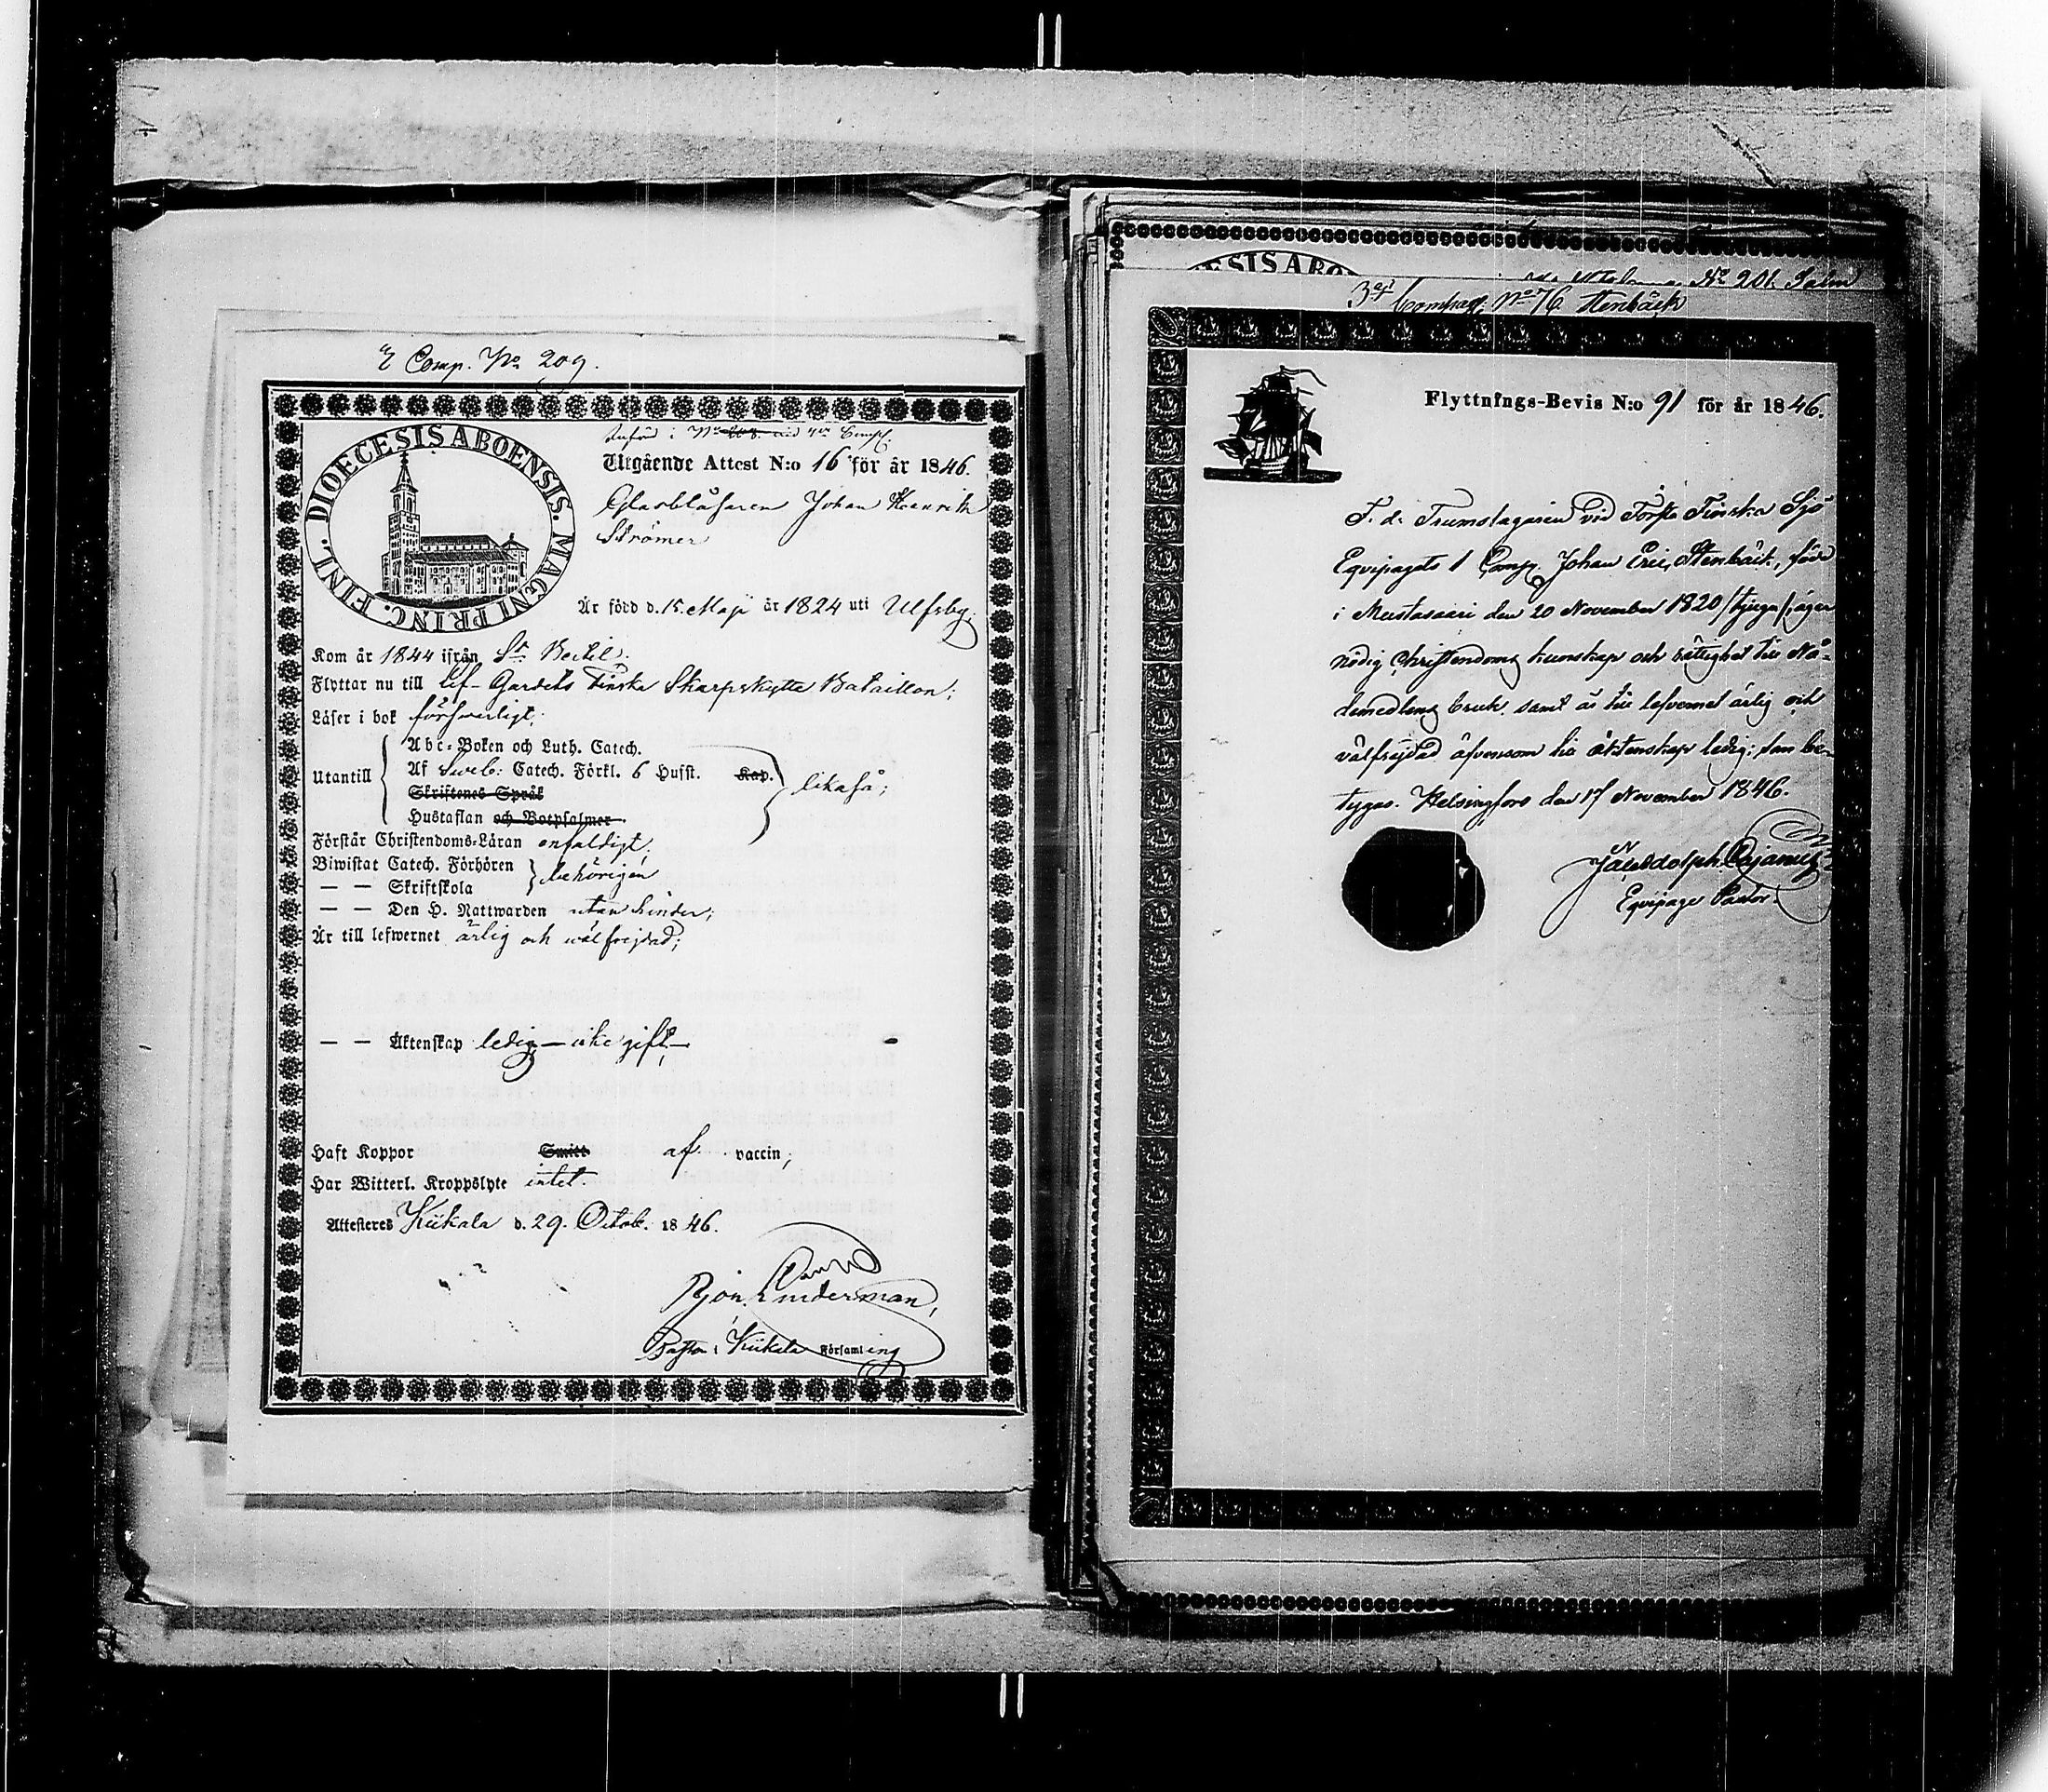 E Comp. No 209.
DIOECESIS ABOENSIS. MAGNI PRINC. FINL.
Införd i No
Utgående Attest N:o 16 för år 1846.
Glasblåsaren Johan Henrik
Strömer
Är född d. 15. Maji år 1824 uti Ulfsby.
Kom år 1844 ifrån St. Bertil.
Flyttar nu till Lif-Gardets Finska Skarpskytte Bataillon;
Läser i bok försvarligt;
Abc-Boken och Luth. Catech.
Utantill Af Sveb: Catech. Förkl. 6 Hufst. Kap. likaså;
Skriftenes Språk
Hustaflan och Botpsalmer
Förstår Christendoms-Läran enfaldigt;
Biwistat Catech. Förhören
— — Skriftskola behörigen
— — Den H. Nattwarden utan hinder;
Är till lefwernet ärlig och wälfrejdad;
— — Äktenskap ledig — icke gift —
Haft Koppor Smitt af vaccin;
Har Witterl. Kroppslyte intet.
Attesteres Kiikala d. 29. Octob. 1846.
Björ. Linderman,
Pastor i Kiikala Församling
DIOECESIS ABO
No 201. Salm
3dj Compag. No 76 Stenbäck
Flyttnings-Bevis N:o 91 för år 1846.
F. d. Trumslagaren vid Första Finska Sjö
Equipagets 1 Comp. Johan Eric Stenbäck, född
i Mustasaari den 20 November 1820 /tjugu/, äger
nödig Christendoms kunskap och rättighet till Nå-
demedlens bruk, samt är till lefvernet ärlig och
välfrejdad äfvensom till äktenskap ledig; som be-
tygas. Helsingfors den 17 November 1846.
Cajanus
Equipage Pastor.